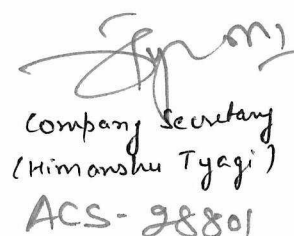 Company Secretary
(Himanshu Tyagi)
ACS- 28801